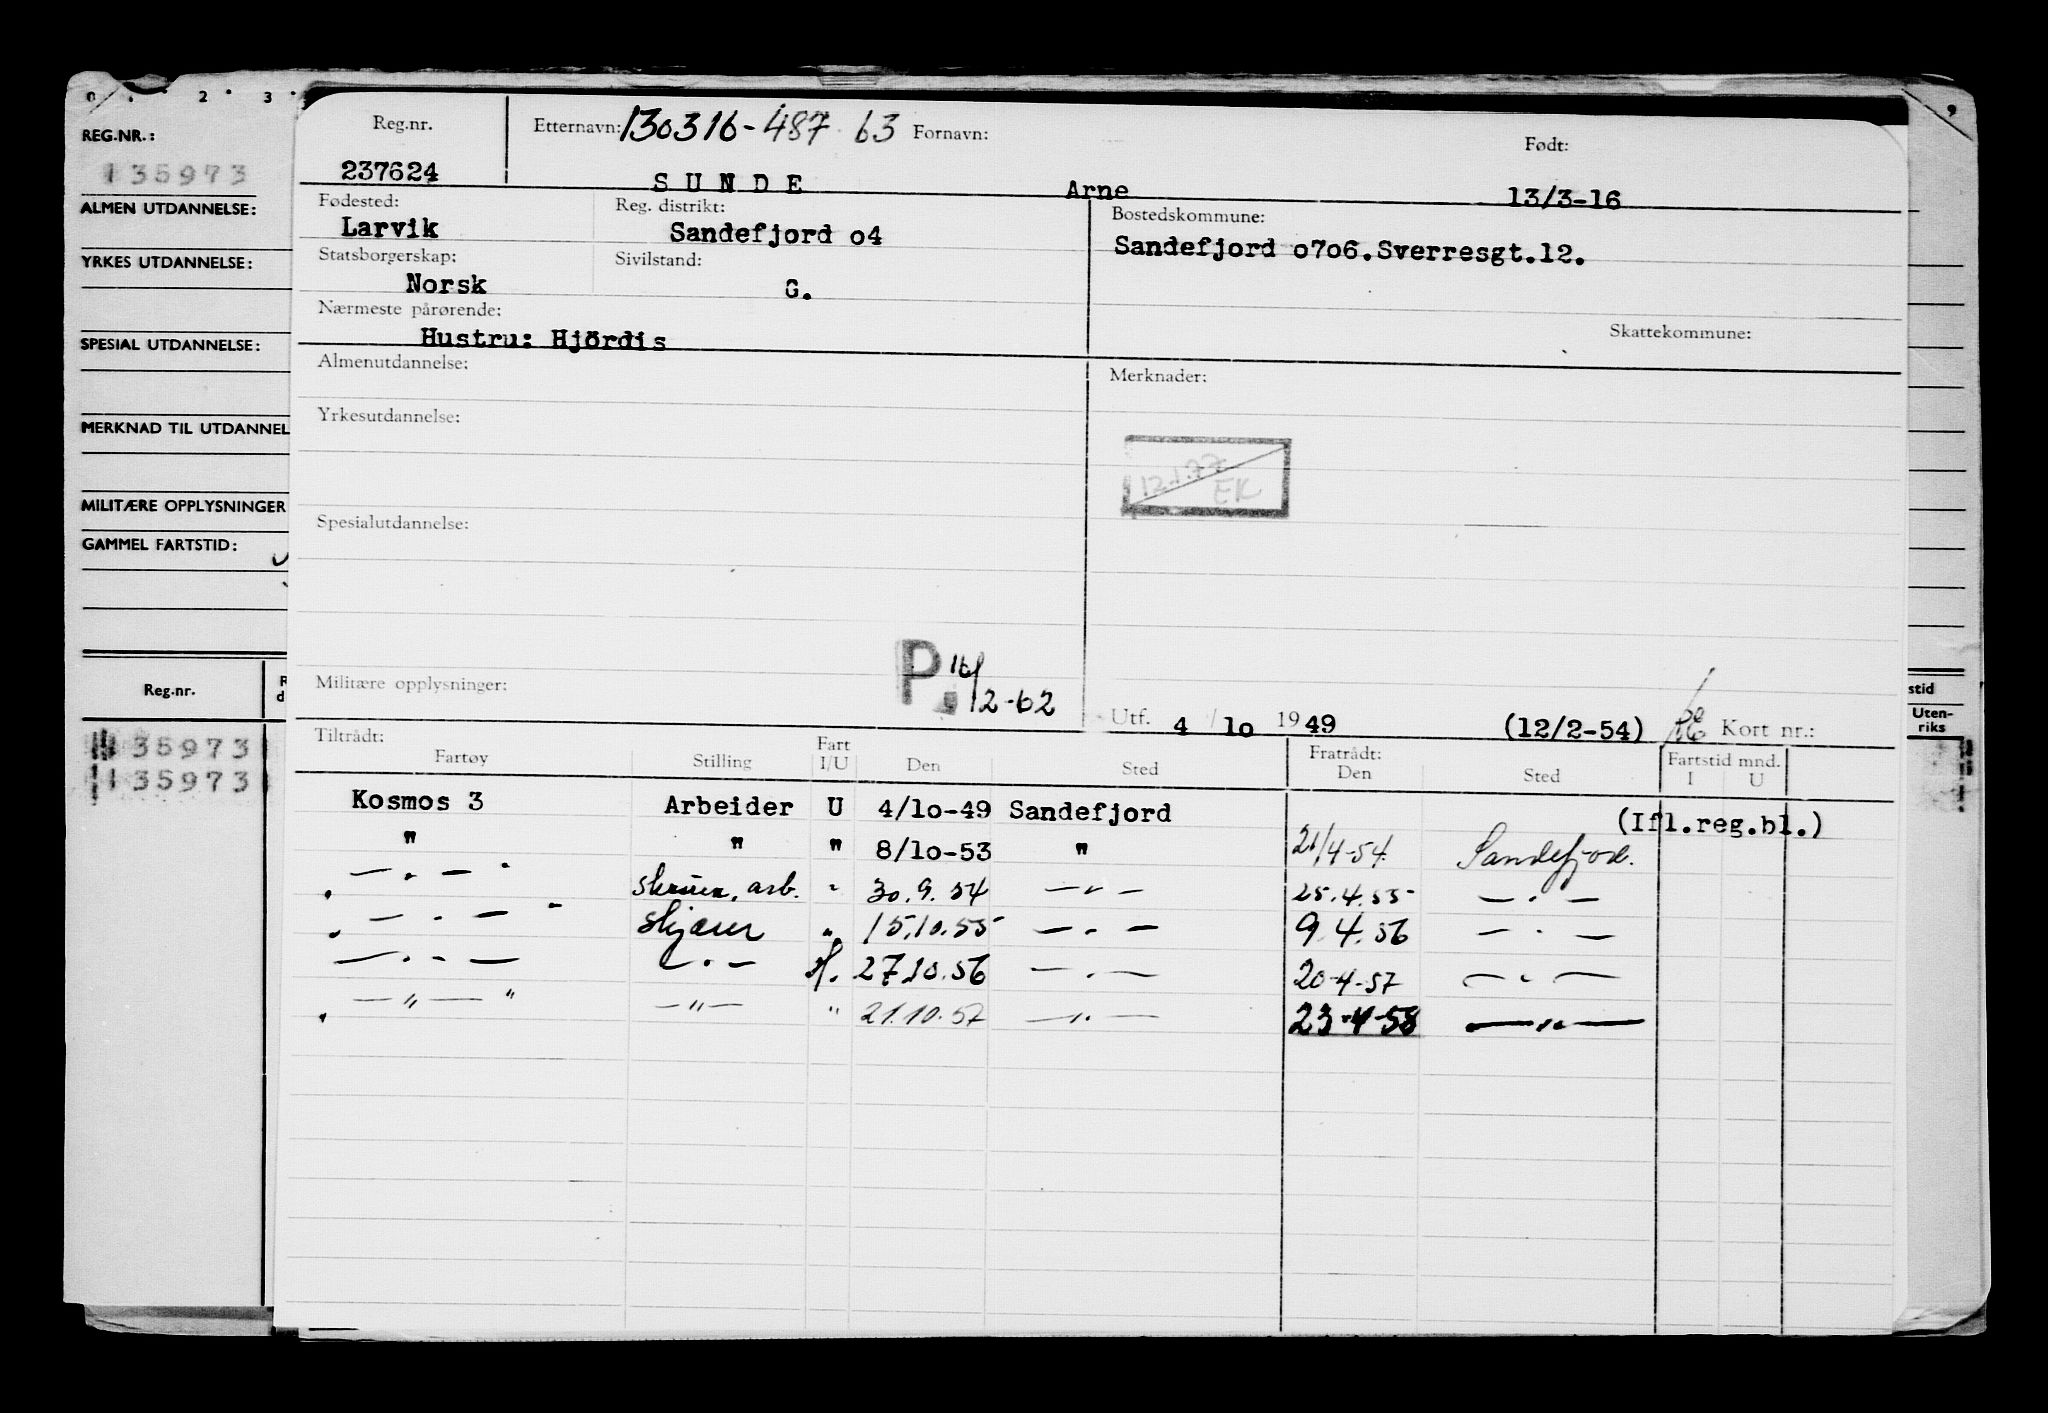 0 . 2 . 3 .
9
REG.NR.:
135973
ALMEN UTDANNELSE:
YRKES UTDANNELSE:
SPESIAL UTDANNELSE:
MERKNAD TIL UTDANNEL
MILITÆRE OPPLYSNINGER
GAMMEL FARTSTID:
Reg.nr.
135973
135973
stid
Uten-
riks
Reg.nr. Etternavn: 130316-487 63 Fornavn: Født:
237624 SUNDE Arne 13/3-16
Fødested: Reg. distrikt: Bostedskommune:
Larvik Sandefjord o4 Sandefjord o7o6.Sverresgt.12.
Statsborgerskap: Sivilstand:
Norsk G.
Nærmeste pårørende: Skattekommune:
Hustru: Hjördis
Almenutdannelse: Merknader:
Yrkesutdannelse:
12.1.77
EK
Spesialutdannelse:
P. 16/12-62
Militære opplysninger:
Utf. 4 / 1o 1949 (12/2-54) Kort nr.:
Tiltrådt: Fart Fratrådt: Fartstid mnd.
Fartøy Stilling I/U Den Sted Den Sted I U
Kosmos 3 Arbeider U 4/1o-49 Sandefjord (Ifl.reg.bl.)
" " " 8/1o-53 " 21/4-54 Sandefjord.
— " — " arb. " 30.9.54 — " — 25.4.55 — " —
— " — " skjærer " 15.10.55 — " — 9.4.56 — " —
— " — — " — H. 27.10.56 — " — 20-4-57 — " —
— " — " — " — " 21.10.57 — " — 23-4-58 — " —